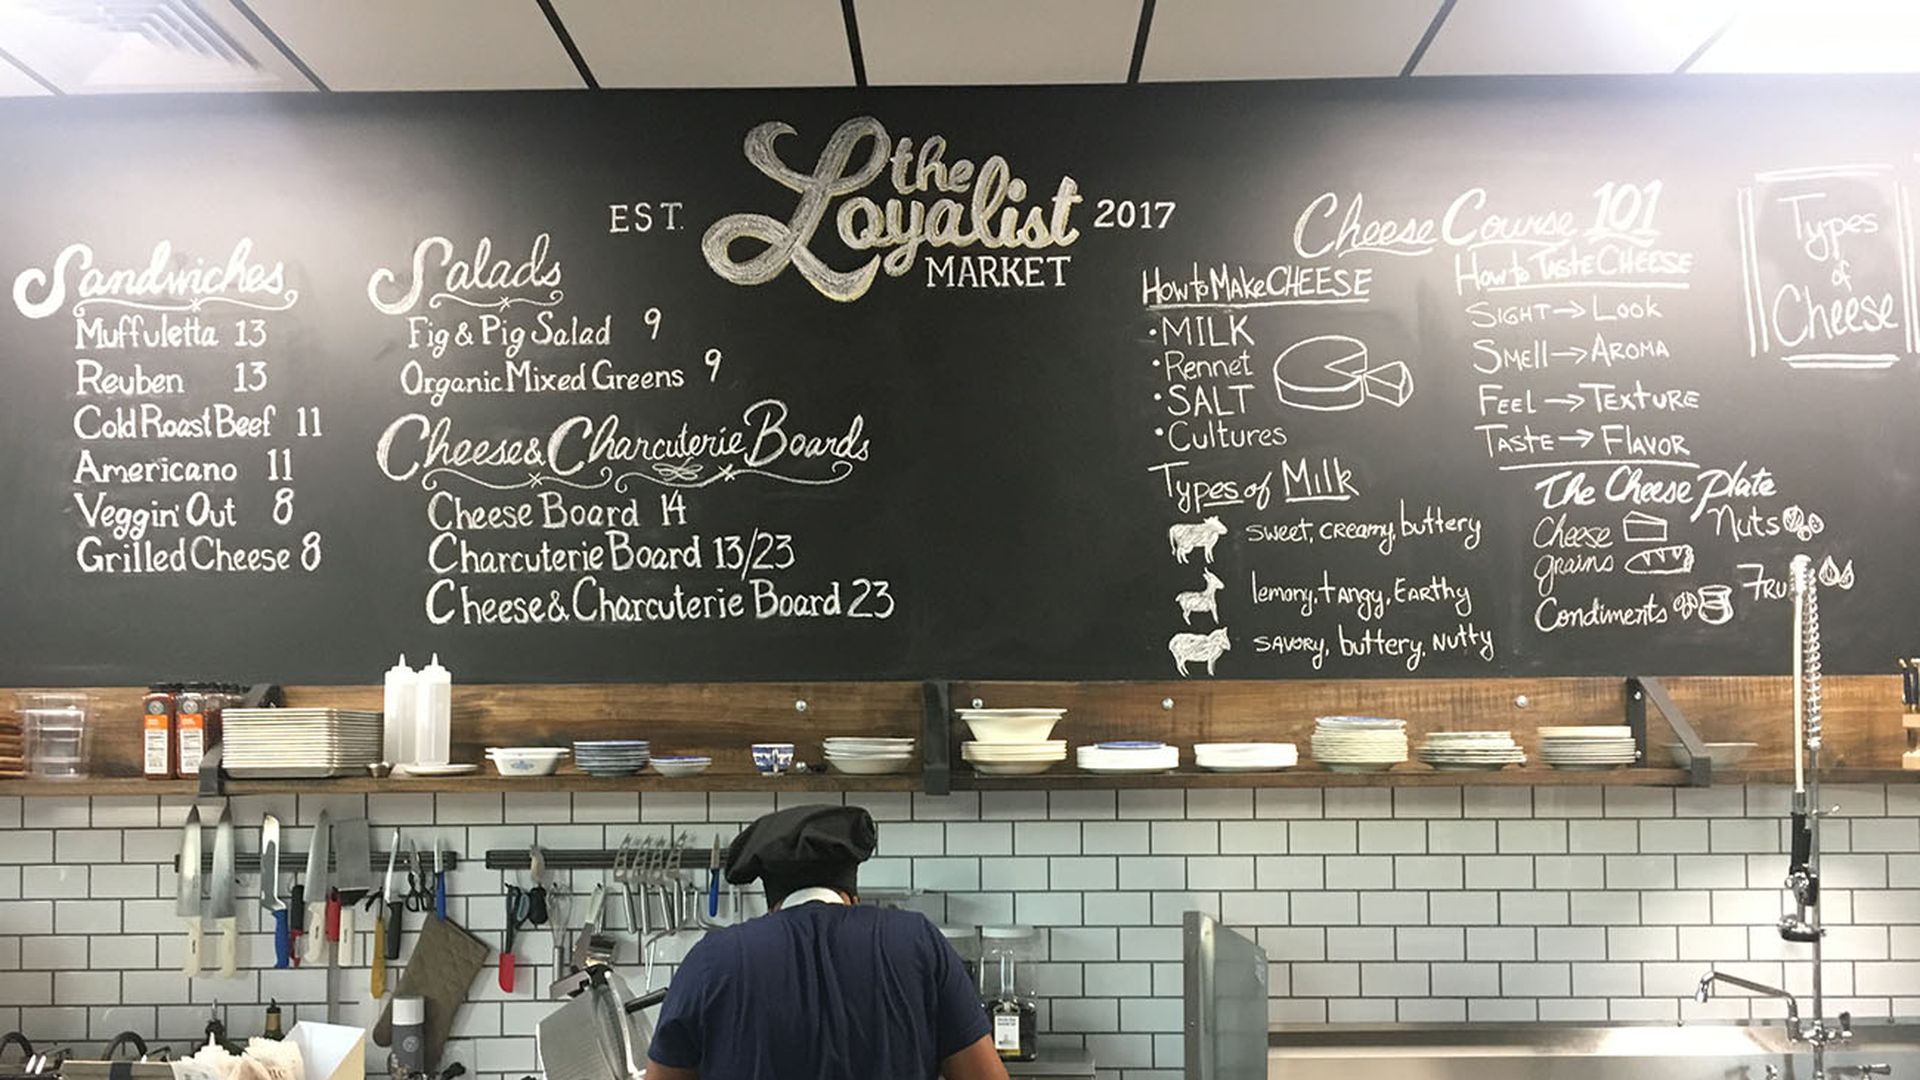 EST. the Loyalist 2017
MARKET
Sandwiches
Muffuletta 13
Reuben 13
Cold Roast Beef 11
Americano 11
Veggin' Out 8
Grilled Cheese 8
Salads
Fig & Pig Salad 9
Organic Mixed Greens 9
Cheese & Charcuterie Boards
Cheese Board 14
Charcuterie Board 13/23
Cheese & Charcuterie Board 23
Cheese Course 101
How to Make CHEESE
•MILK
•Rennet
•SALT
•Cultures
Types of Milk
sweet, creamy, buttery
lemony, tangy, Earthy
savory, buttery, Nutty
How to Taste CHEESE
Sight→Look
Smell→Aroma
Feel→Texture
Taste→Flavor
The Cheese Plate
Cheese Nuts
grains
Condiments
Types
of
Cheese